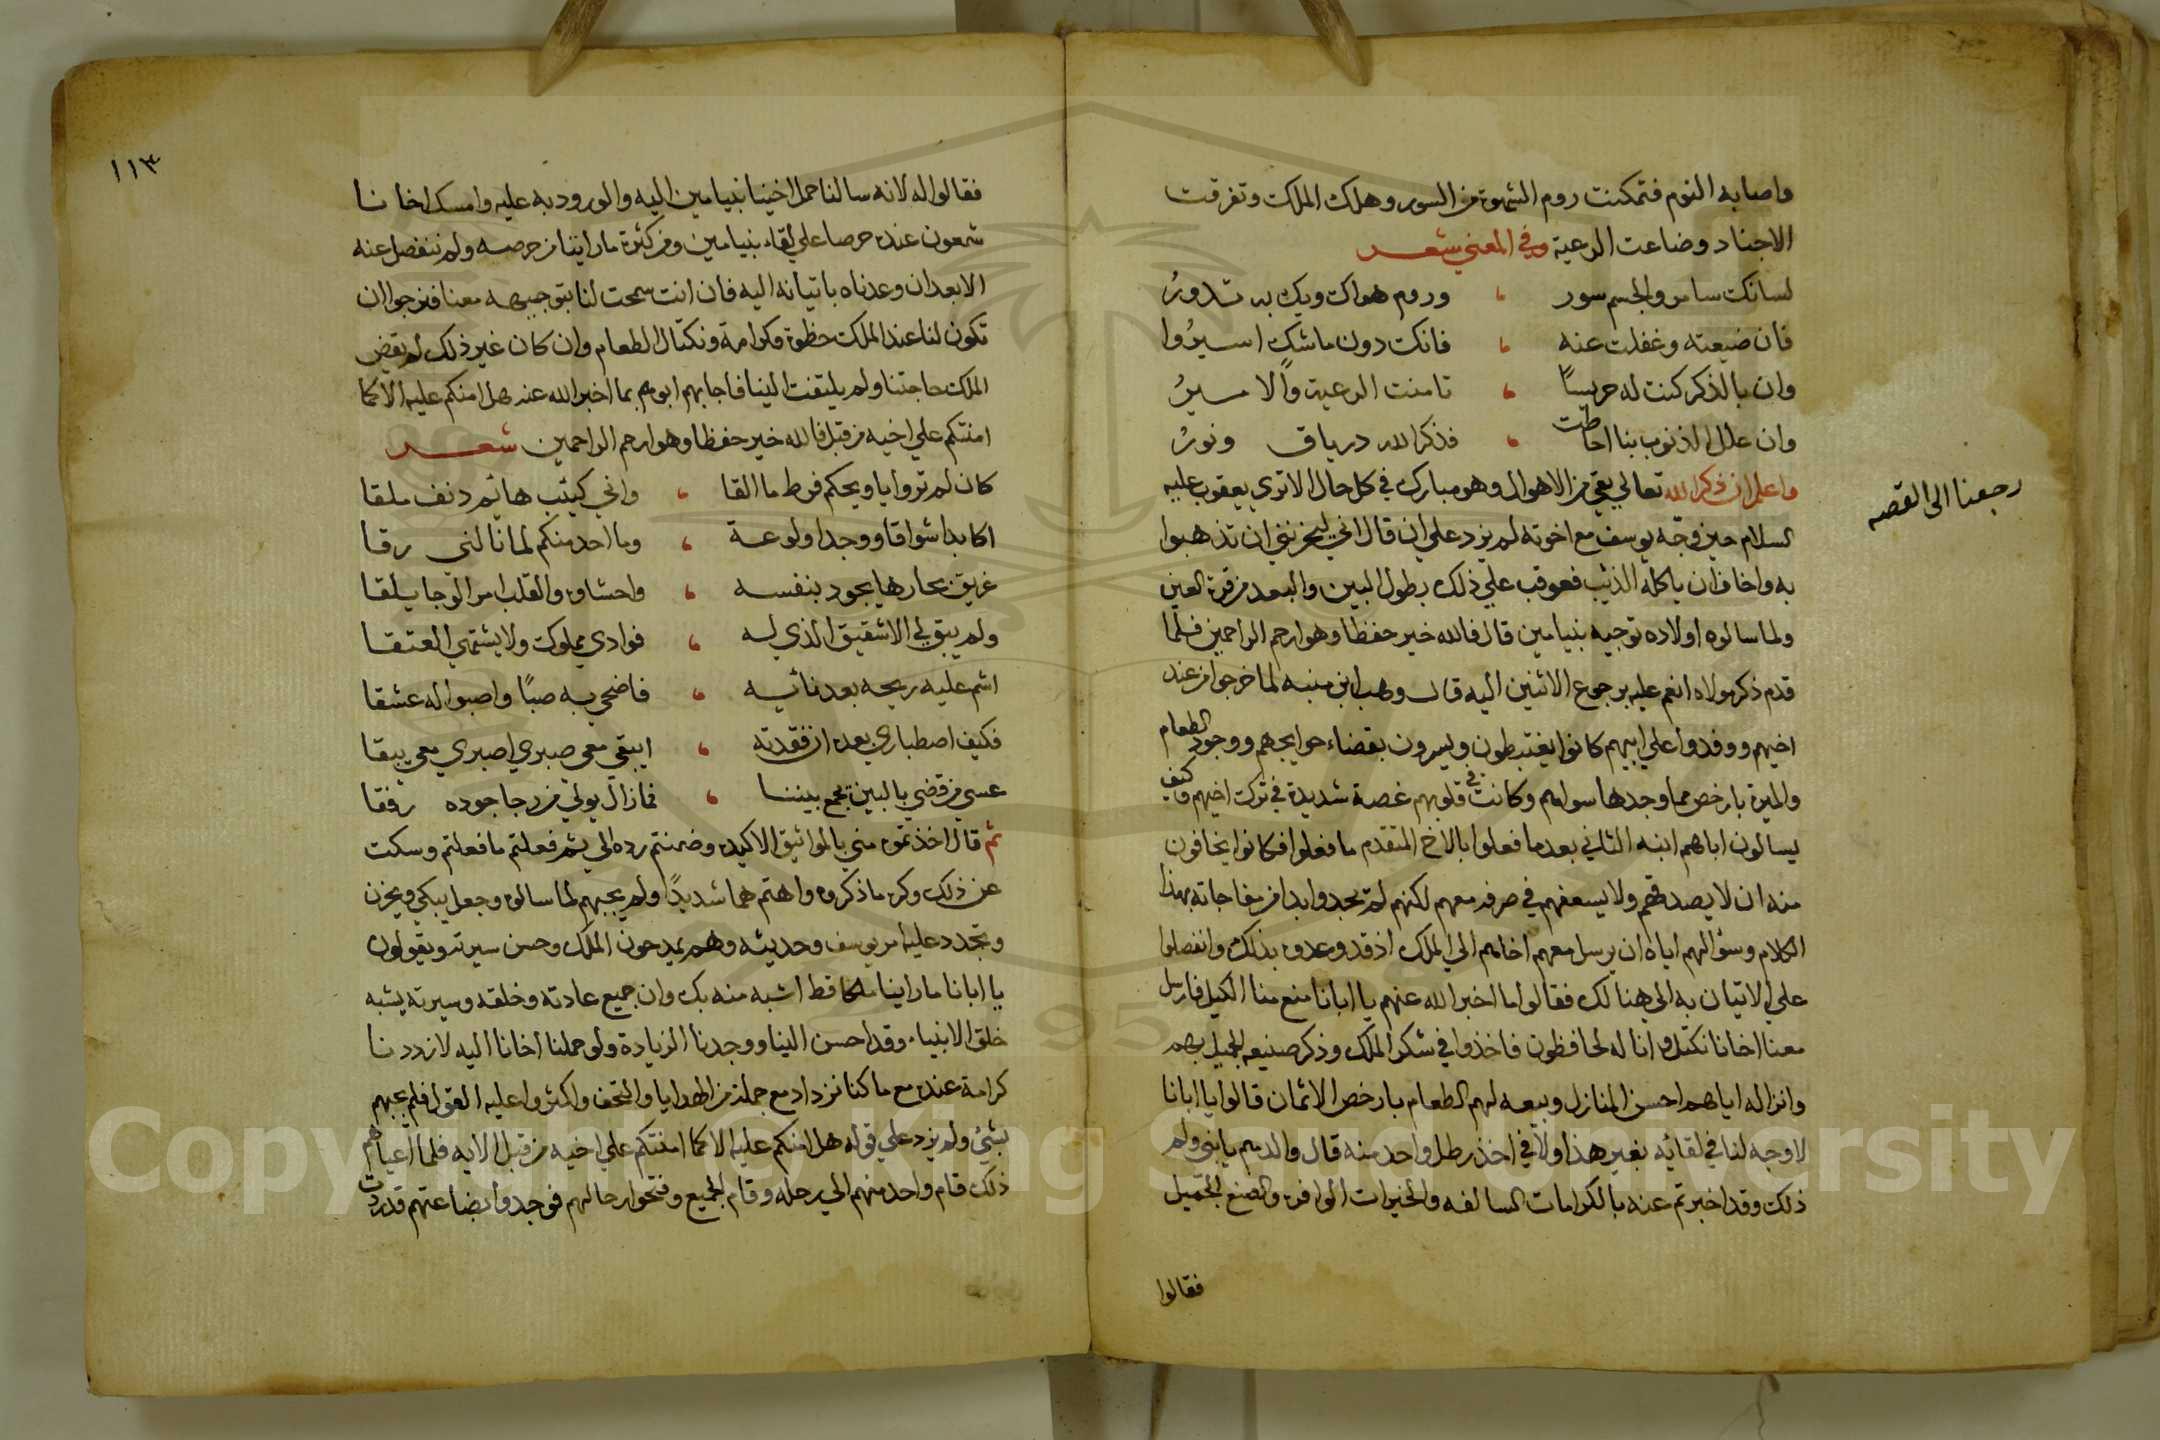 واصابه النوم فتمكنت روم الشهوة من السور وهلك الملك وتفرقت
الاجناد وضاعت الرعية وفي المعني شعر
لسانك سامر والجسم سور ، وروم هواك ويك به تدورُ
فان ضيعته وغفلت عنه ، فانك دون ما شك اسيرُوا
وان بالذكر كنت له حريسًا ، تامنت الرعية والامسيرُ
وان علل الذنوب بنا احاطت ، فذكر الله درياق ونورُ
واعلم ان ذكر الله تعالي يقي من الاهوال وهو مبارك في كل حال الا تري يعقوب عليه
رجعنا الى القصه
السلام حين وجّه يوسف مع اخوته لم يزد علي ان قال اني ليحزنني ان تذهبوا
به واخاف ان ياكله الذيب فعوقب علي ذلك بطول البين والبعد من قرة العين
ولما سالوه اولاده توجيه بنيامين قال فالله خير حفظا وهو ارحم الراحمين فلما
قدم ذكر مولاه انعم عليه برجوع الاثنين اليه قال وهب ابن منبه لما خرجوا من عند
اخيهم ووفدوا علي ابيهم كانوا يغتبطون ويسرون بقضاء حوايجهم ووجود الطعام
والميرة بارخص مما وجدها سواهم وكانت في قلوبهم غصة شديدة في ترك اخيهم وكيف
يسالون اباهم ابنه الثاني بعد ما فعلوا بالاخ المتقدم ما فعلوا فكانوا يخافون
منه ان لا يصدقهم ولا يسعفهم في صرفه معهم لكنهم لم يجدوا بدا من مفاجاته بهذا
الكلام وسؤالهم اياه ان يرسل معهم اخاهم الي الملك اذ قد وعدوه بذلك وانفصلوا
علي الاتيان به الي هنالك فقالوا ما اخبر الله عنهم يا ابانا منع منا الكيل فارسل
معنا اخانا نكتل وانا له لحافظون فاخذوا في شكر الملك وذكر صنيعه الجميل بهم
وانزاله اياهم احسن المنازل وبيعه لهم الطعام بارخص الاثمان قالوا يا ابانا
لا وجه لنا في لقائه بغير هذا ولا في اخذ رطل واحد منه قال والدهم يا بني ولم
ذلك وقد اخبرتم عنه بالكرامات السالفه والخيرات الوافرة والصنع الجميل
فقالوا
١١٣
فقالوا له لانه سالنا حمل اخينا بنيامين اليه والورود به عليه وامسك اخانا
شمعون عنده حرصا علي لقاء بنيامين ومن كثرة ما راينا من حرصه ولم ننفصل عنه
الا بعد ان وعدناه باتيانه اليه فان انت سمحت لنا بتوجيهه معنا فنرجوا ان
تكون لنا عند الملك حظوة وكرامة ونكتال الطعام وان كان غير ذلك لم يقض
الملك حاجتنا ولم يلتفت الينا فاجابهم ابوهم بما اخبر الله عنه هل امنكم عليه الا كما
امنتكم علي اخيه من قبل فالله خير حفظا وهو ارحم الراحمين شعر
كان لم تروا يا ويحكم فرط ما القا ، واني كييب هايم دنف ملقا
اكابد اشواقا ووجدا ولوعة ، وما احد منكم لما نالني رقا
غريق بحارها يجود بنفسه ، واحشاوه والقلب امر الوجا يلقا
ولم يبق لي الا شقيق الذي له ، فوادي مملوك ولا يشتهي العتقا
اشم عليه ريحه بعد نائيه ، فاضحي به صبًا واصبوا له عشقا
فكيف اصطباري بعده ان فقدته ، ايبقي معي صبري اصبري معي يبقا
عسي من قضي بالبين يجمع بيننا ، فما زال يولي من رجا جوده رفقا
ثم قال اخذتموه مني بالمواثيق الاكيده وضمنتم رده الي ثم فعلتم ما فعلتم وسكت
عن ذلك وكره ما ذكروه واهتم هما شديدًا ولم يجبهم لما سالوه وجعل يبكي ويحزن
وتجدد عليه امر يوسف وحديثه وهم يمدحون الملك وحسن سيرته ويقولون
يا ابانا ما راينا ملكا قط اشبه منه بك وان جميع عادته وخلقه وسيرته يشبه
خلق الانبياء وقد احسن الينا ووجدنا الزيادة ولو حملنا اخانا اليه لازددنا
كرامة عنده مع ما كنا نزداد مع جملة من الهدايا والتحف واكثروا عليه القول فلم يجبهم
بشيئ ولم يزد علي قوله هل امنكم عليه الا كما امنتكم علي اخيه من قبل الايه فلما اعياهم
ذلك قام واحد منهم الي رحله وقام الجميع وفتحوا رحالهم فوجدوا بضاعتهم قد ردت
Copyright © King Saud University